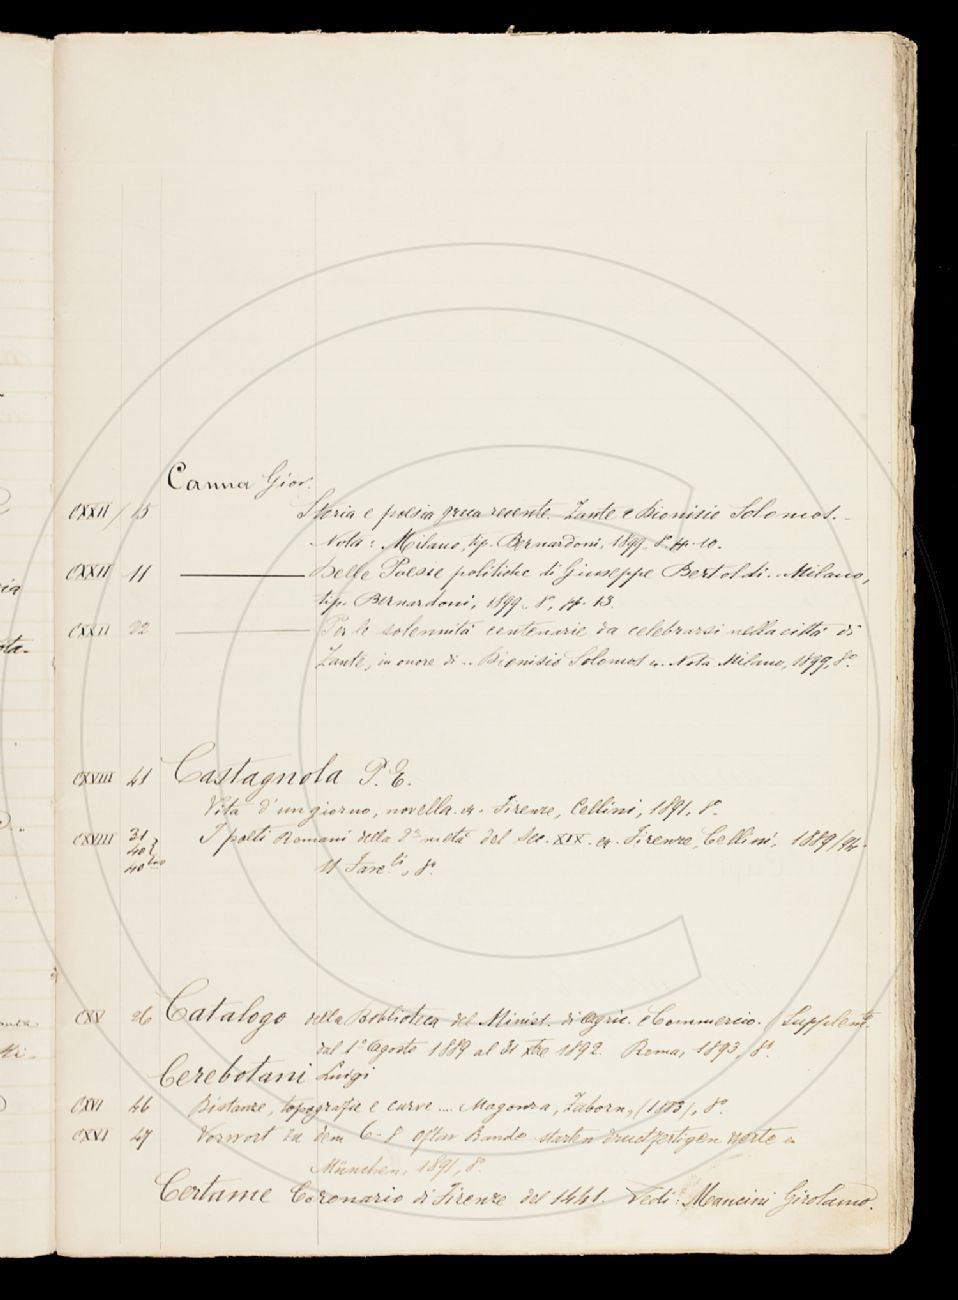 Canna Giov.
CXXII / 15 Storia e poesia greca recente. Zante e Dionisio Solomos. -
Nota: Milano, tip. Bernardoni, 1899. 8. pp. 20.
CXXII 11 Delle Poesie politiche di Giuseppe Bertoldi. - Milano,
tip. Bernardoni, 1899. 8, pp. 13.
CXXII 22 Per le solennità centenarie da celebrarsi nella città di
Zante, in onore di .. Dionisio Solomos. Nota Milano, 1899, 8°.
CXVIII 41 Castagnola P. E.
Vita d'un giorno, novella. Firenze, Cellini, 1891, 8°.
CXVIII 31 I poeti Romani della 2a metà del Sec. XIX. Firenze, Cellini, 1889/94.
40
40 bis 11 Fasc.li, 8°.
CXV 26 Catalogo della Biblioteca del Minist. di Agric. e Commercio. (Supplem.
dal 1° Agosto 1889 al 31 Xbre 1892. Roma, 1893, 8°.
Cerebotani Luigi
CXVI 46 Distanze, topografia e curve .... Magonza, Zabern, (1883), 8°.
CXVI 47 Vorwort zu dem 6-8 Bande starken druckfertigen
München, 1891, 8°.
Certame Coronario di Firenze del 1441. Vedi: Mancini Girolamo.